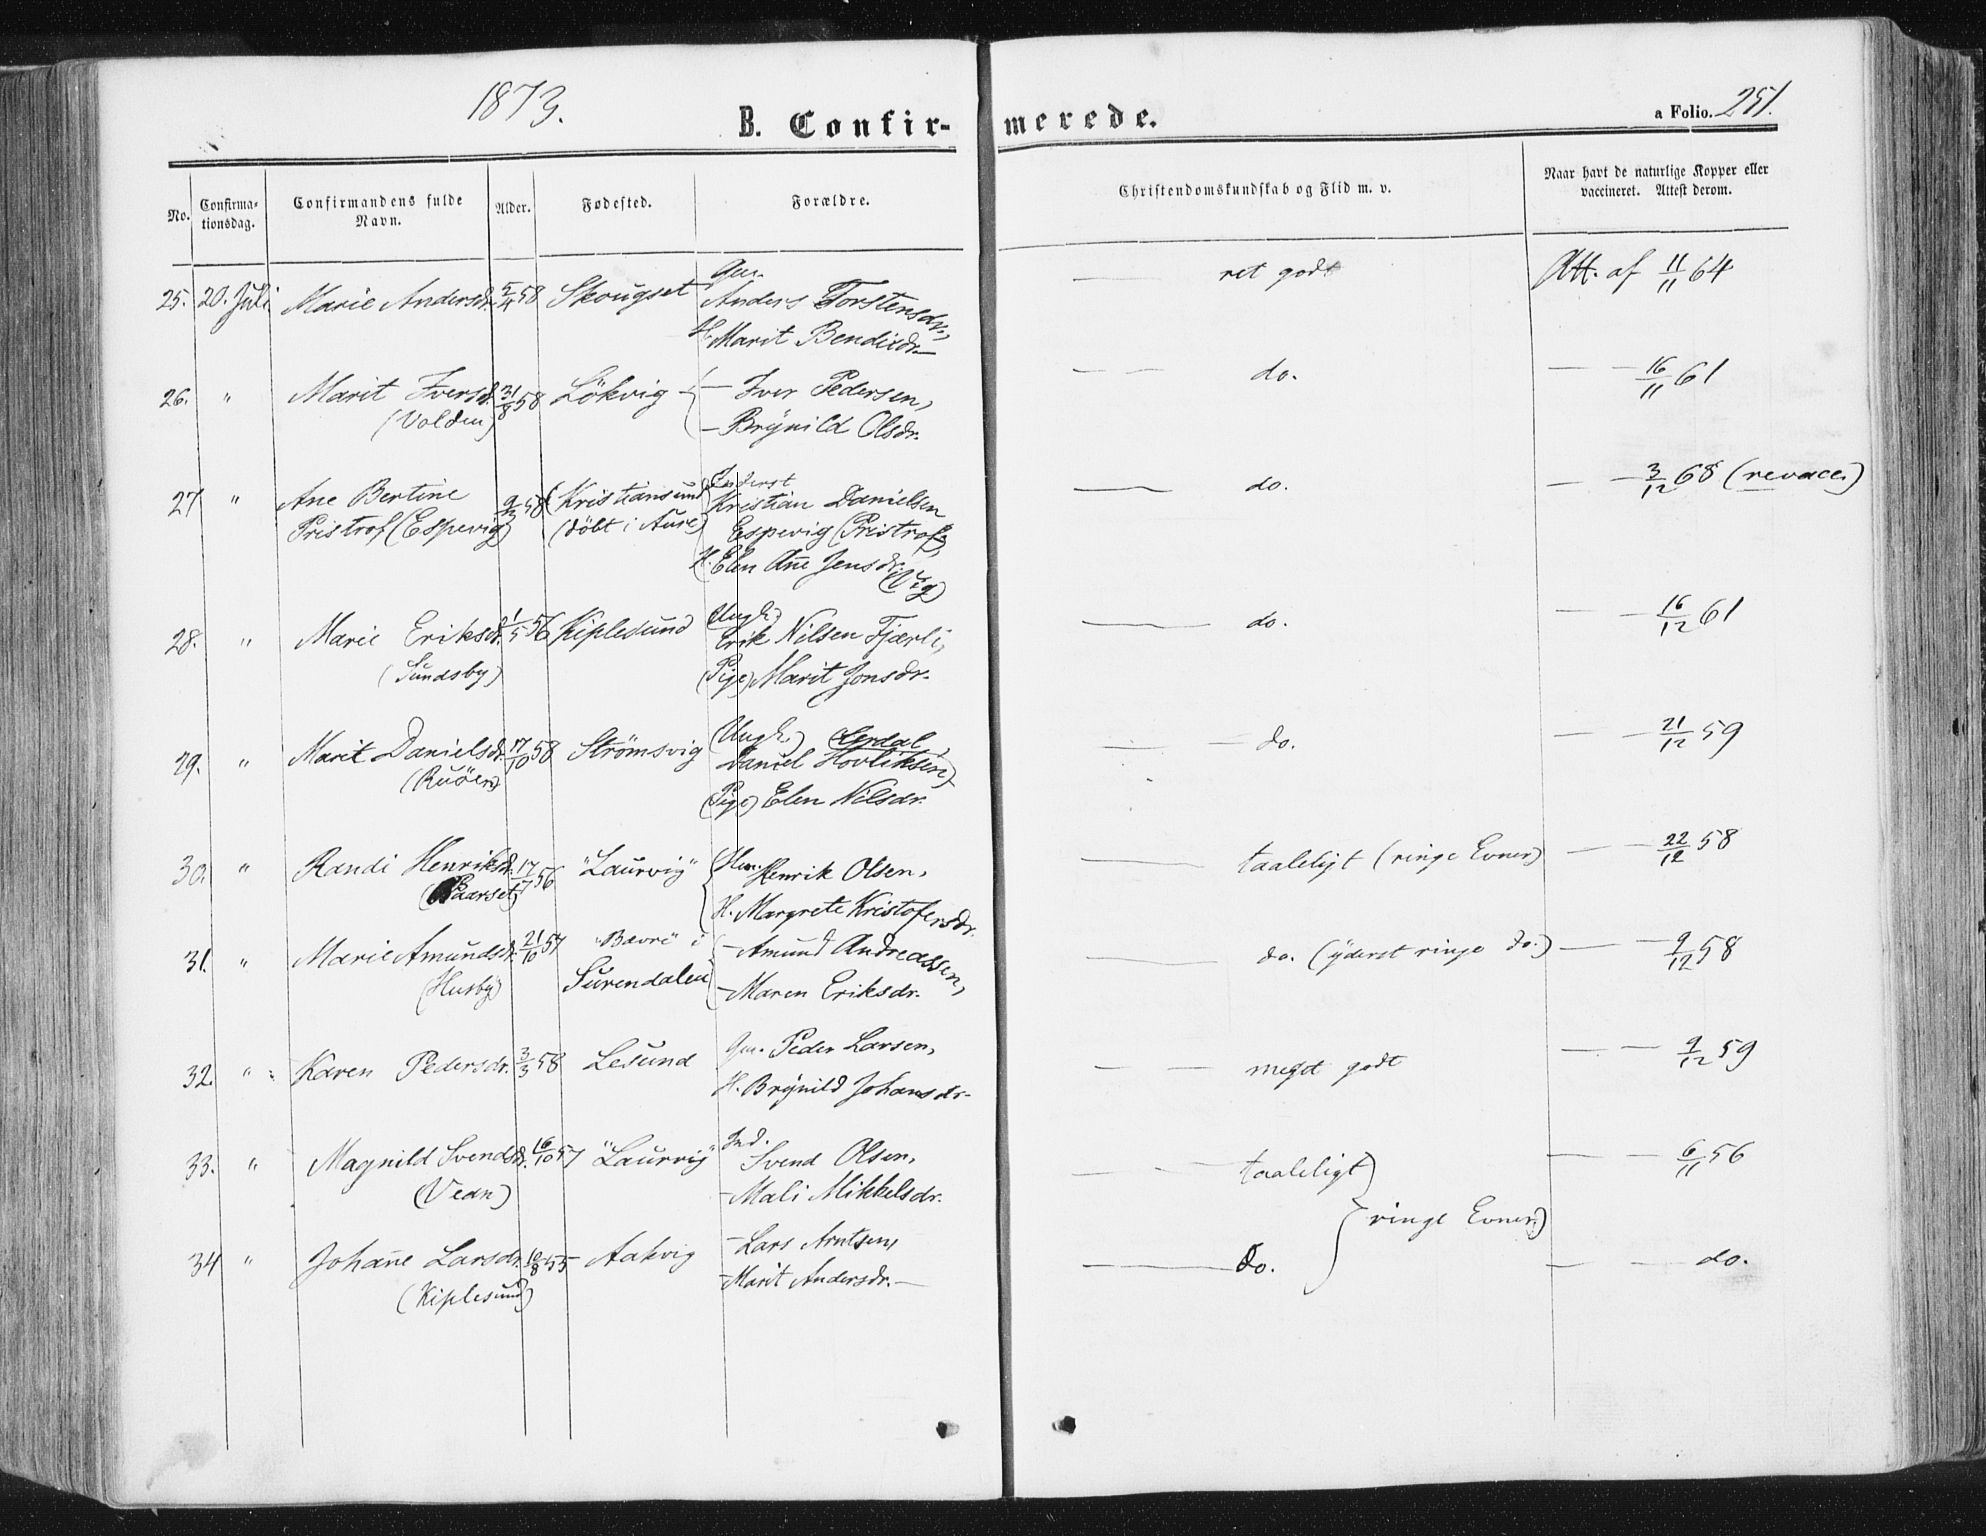 1873.
B. Confir-merede.
a Folio. 251.
No.
Confirma-tionsdag.
Confirmandens fulde Navn.
Alder.
Fødested.
Forældre.
Christendomskundskab og Flid m. v.
Naar havt de naturlige Kopper eller vaccineret. Attest derom.
25. 20. Juli Marie Andersdr. 5/4 58 Skougset Gm. Anders Torstensdr., ret godt Att. af 11/11 64
H. Marit Bendixdr.
26. " Marit Iversd. 31/8 58 Lökvig - Iver Pedersen, do. 16/11 61
(Volden) - Brynild Olsdr.
27 " Ane Bertine 9/3 58 (Kristiansund Inderst Kristian Danielsen do. 3/12 68 (revacc.)
Pristrof (Espevig) (döbt i Aure) Espevig (Pristrof),
H. Elen Ane Jensdr. (Vig)
28. " Marie Eriksdr. 1/5 56 Kiplesund (Ungk.) Erik Nilsen Fjærli, do. 16/12 61
(Sundsby) (Pige) Marit Jonsdr.
29. " Marit Danielsdr. 17/10 58 Strömsvig (Ungk.) Daniel Hovliksen, do. 21/12 59
(Ruöen) (Pige) Elen Nilsdr.
30. " Randi Henriksdr. 17/7 56 "Laurvig" Henrik Olsen, taaleligt (ringe Evner) 22/12 58
(Baarset) H. Margrete Kristofersdr.
31. " Marie Amundsdr. 21/10 57 Bævre i - Amund Andreassen, do. (yderst ringe do.) 9/12 58
(Husby) Surendalen - Maren Eriksdr.
32. " Karen Pedersdr. 3/3 58 Lesund Gm. Peder Larsen, meget godt 9/12 59
H. Brynild Johansdr.
33. " Magnild Svendsdr. 16/10 57 "Laurvig" Ind. Svend Olsen, taaleligt 6/11 56
(Vean) - Mali Mikkelsdr.
(ringe Evner)
34 " Johane Larsdr. 10/8 55 Aakvig - Lars Arntsen, do. do.
(Kiplesund) - Marit Andersdr.